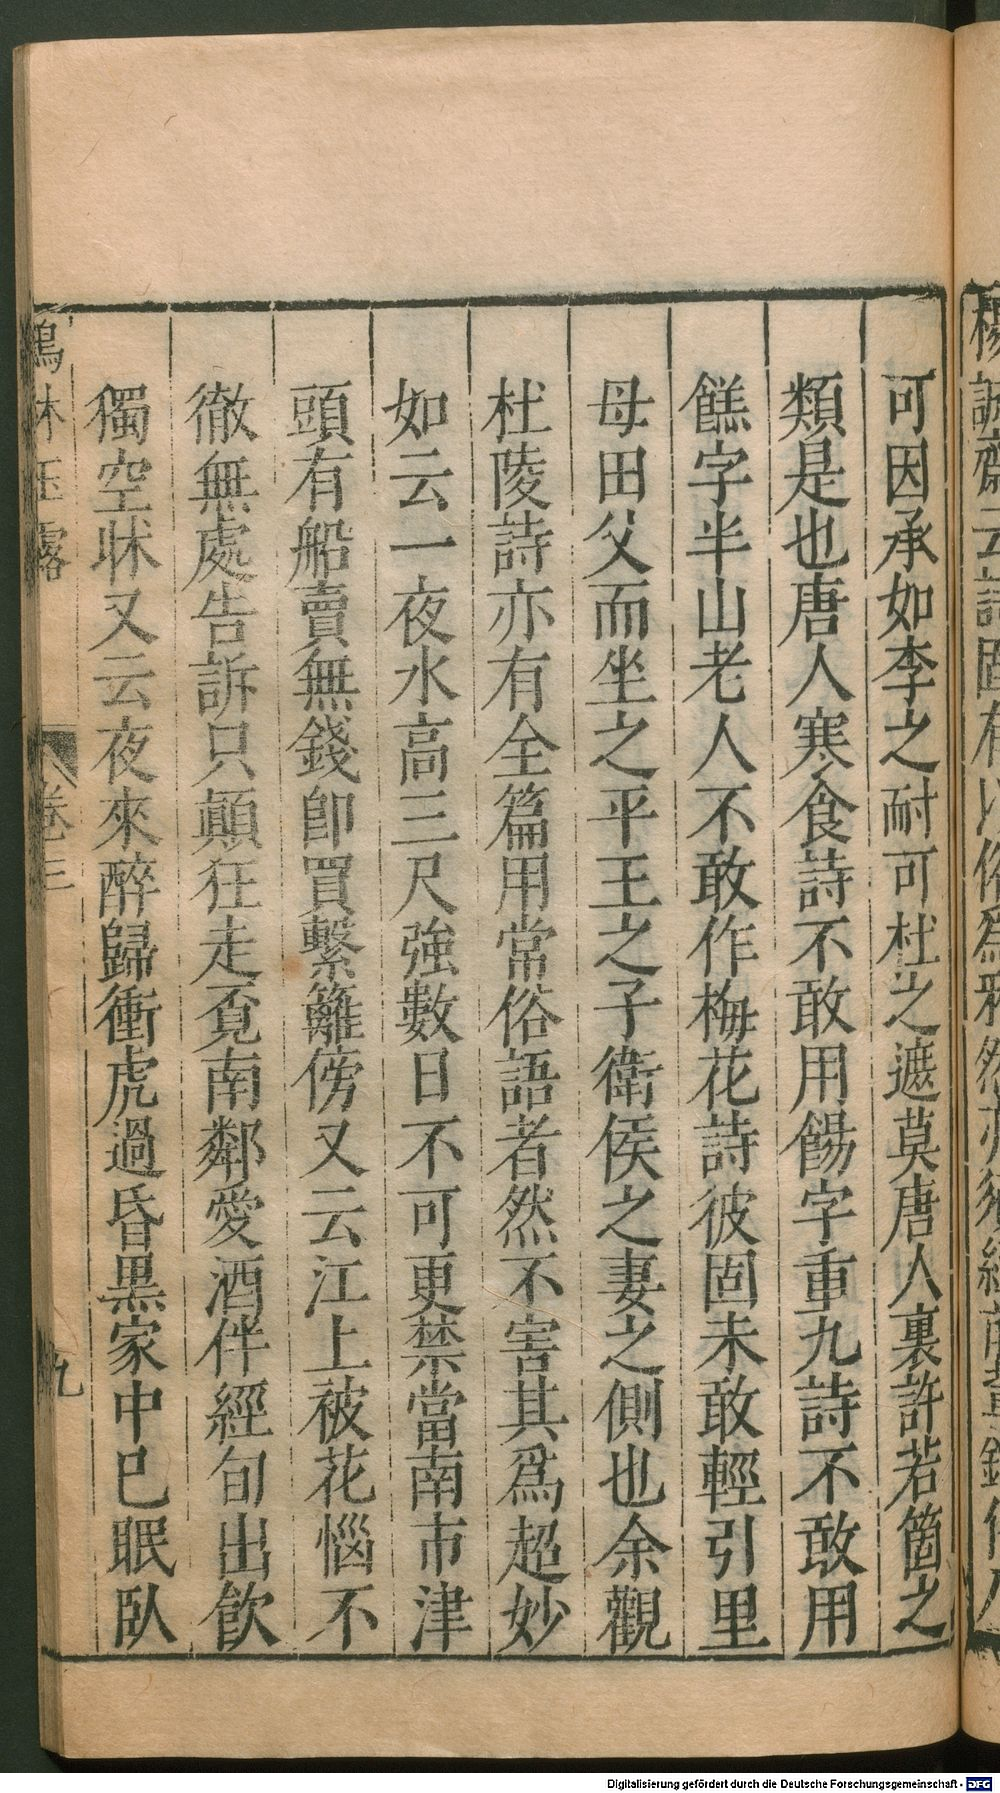 楊誠齋云詩固有以俗為雅然亦須經前輩
可因承如李之耐可杜之遮莫唐人裏許若箇之
類是也唐人寒食詩不敢用餳字重九詩不敢用
餻字半山老人不敢作梅花詩彼固未敢輕引里
母田父而坐之平王之子衛侯之妻之側也余觀
杜陵詩亦有全篇用常俗語者然不害其爲超妙
如云一夜水高三尺強數日不可更禁當南市津
頭有船賣無錢卽買繫籬傍又云江上被花惱不
徹無處告訴只顛狂走覔南鄰愛酒伴經旬出飲
獨空牀又云夜來醉歸衝虎過昏黑家中已眠臥
林玉露
卷三
九
Digitalisierung gefördert durch die Deutsche Forschungsgemeinschaft - DFG